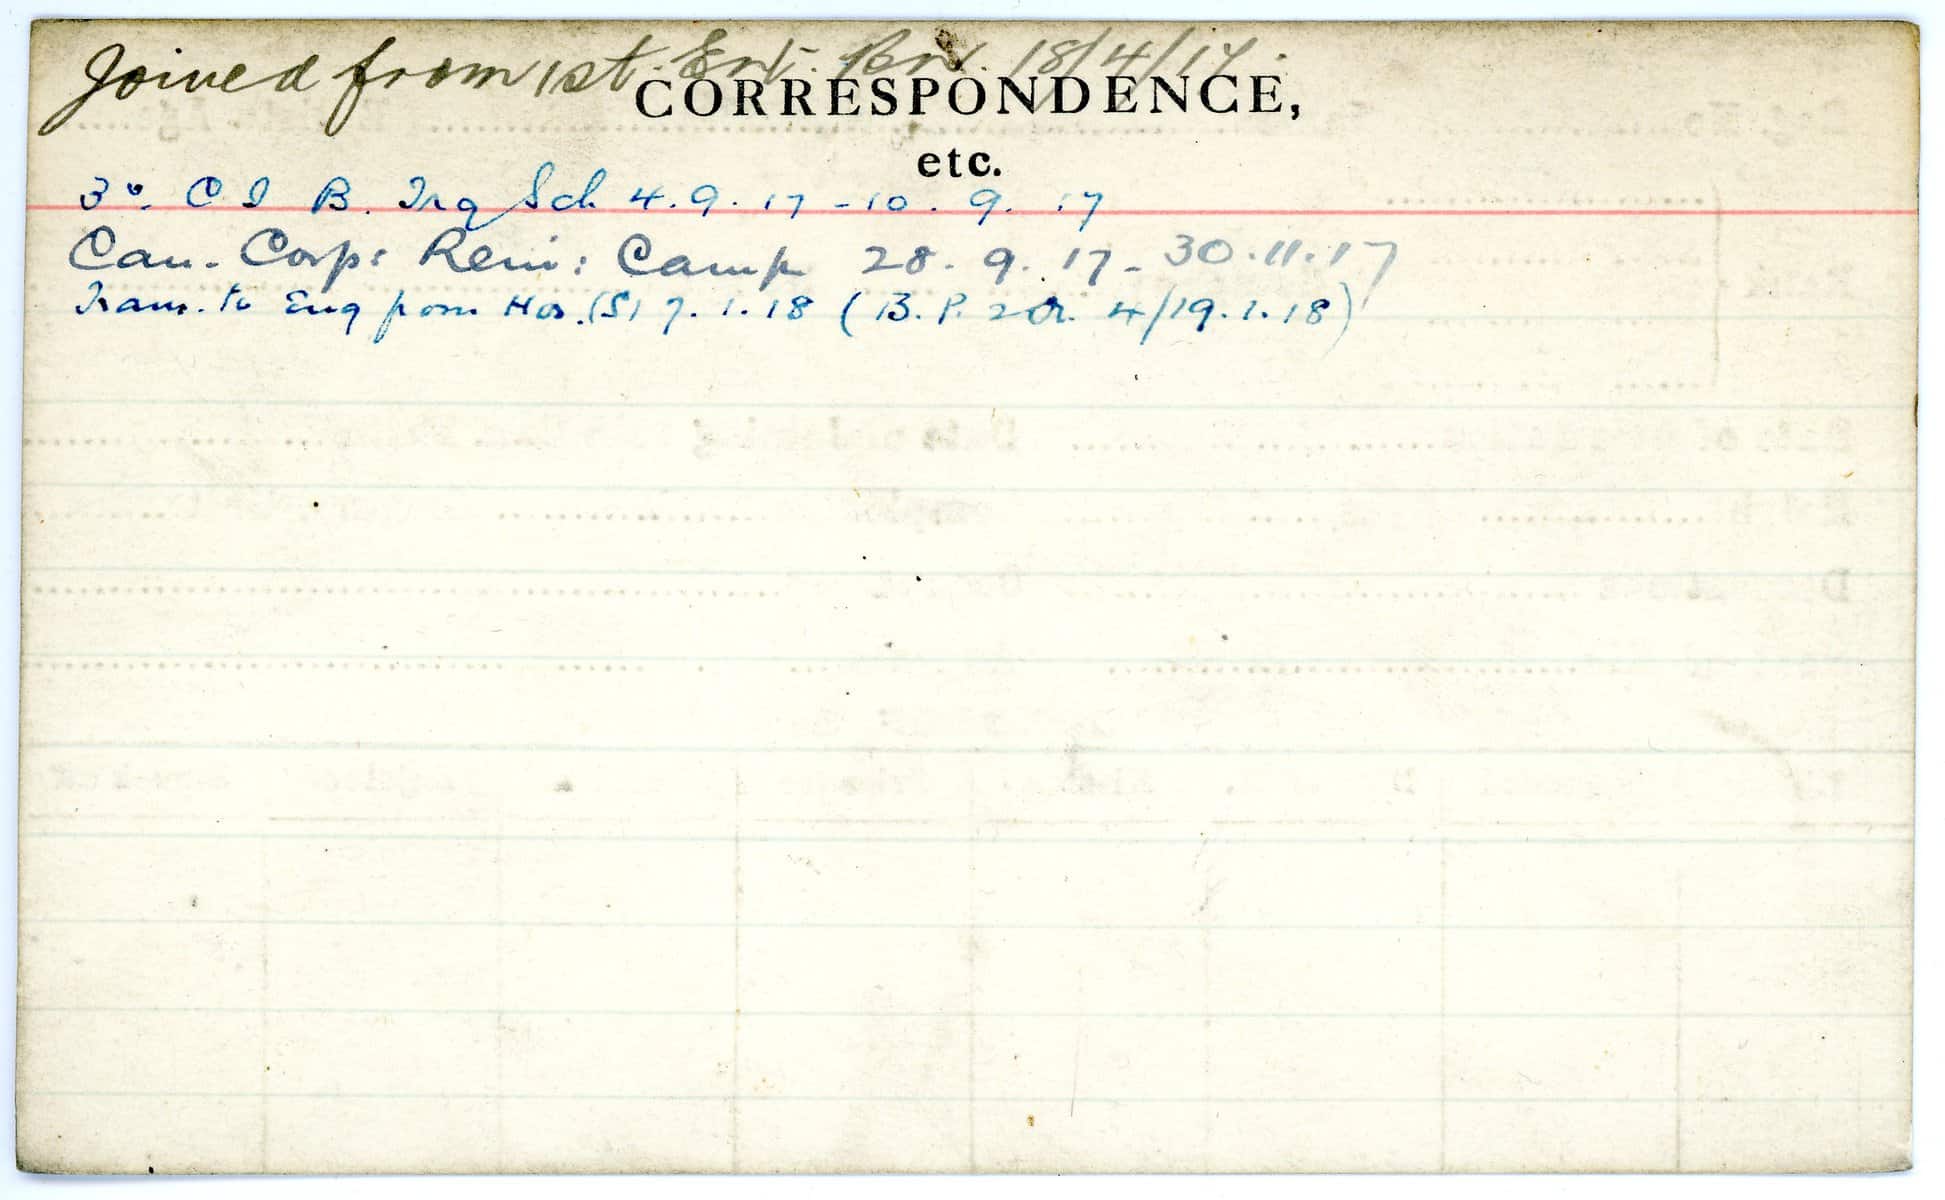 Joined from 1st. Ent. Bn. 18/4/17.
CORRESPONDENCE,
etc.
3º. C I B. Trg Sch 4.9.17 - 10.9.17
Can. Corps Rein: Camp 28.9.17 - 30.11.17
Trans. to Eng from Hos. (S) 7.1.18 (B.P. 2 Or. 4/19.1.18)